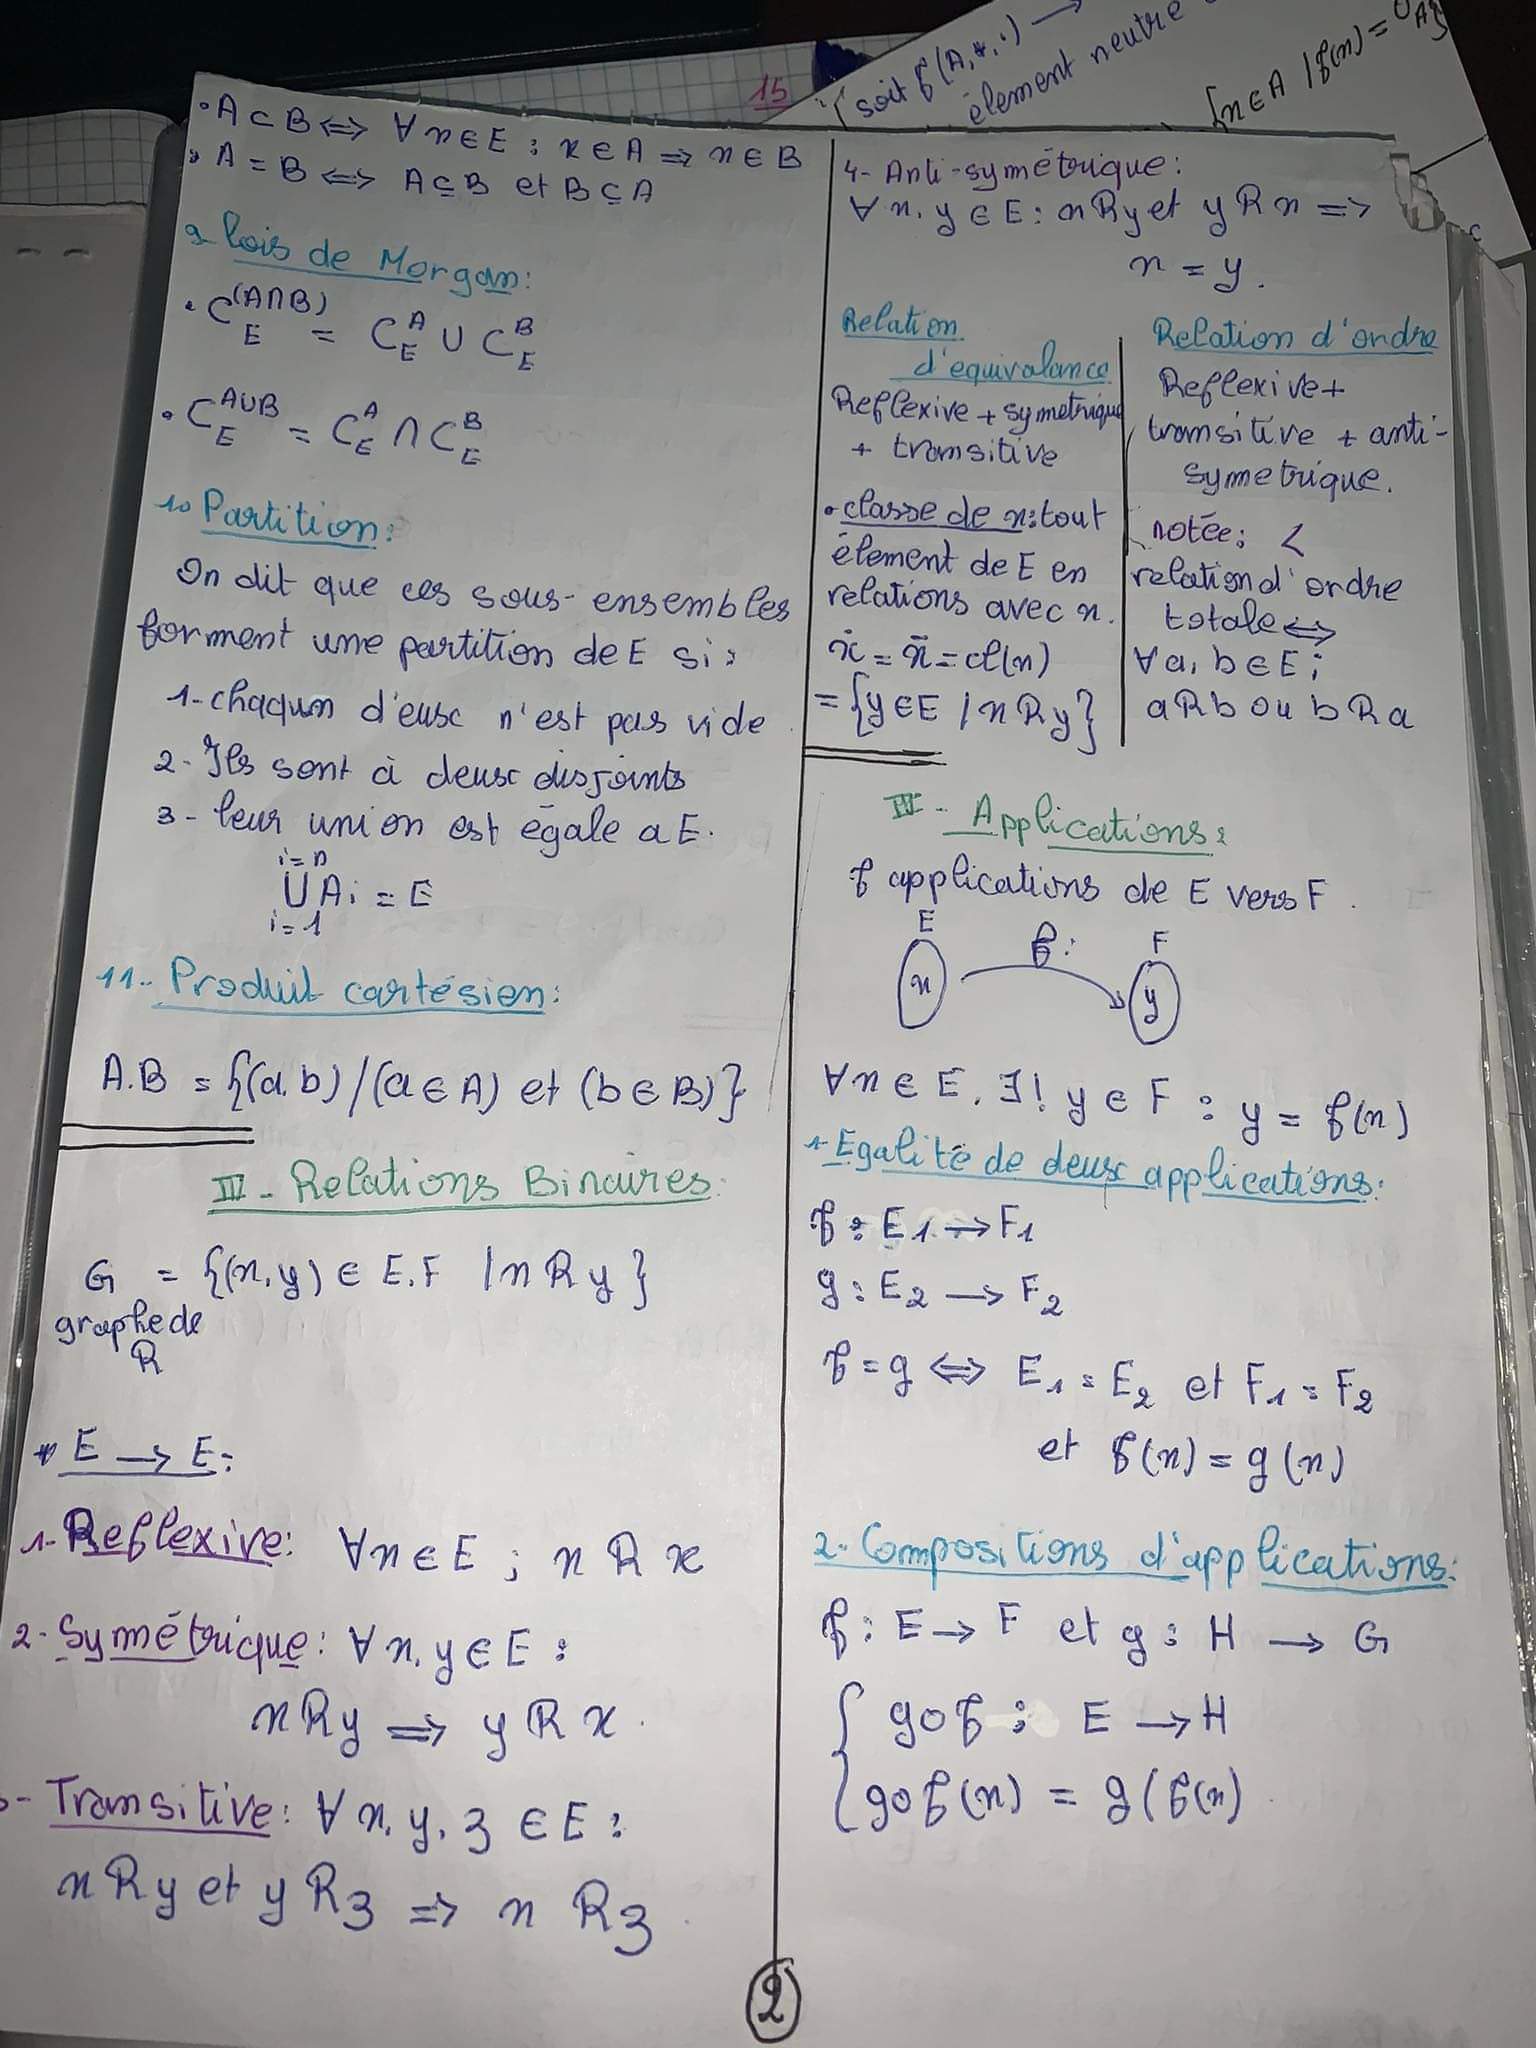 15
soit f(A, *, ·) →
élement neutre
{x ∈ A / f(x) = 0A}
• A ⊂ B ⟺ ∀ x ∈ E : x ∈ A ⟹ x ∈ B
• A = B ⟺ A ⊆ B et B ⊆ A
9- lois de Morgan:
• C_E^(A∩B) = C_E^A ∪ C_E^B
• C_E^A∪B = C_E^A ∩ C_E^B
10 Partition:
On dit que ces sous-ensembles
forment une partition de E si:
1- chaqun d'eux n'est pas vide
2- Ils sont à deux disjoints
3- leur union est égale a E.
i=n
∪ Ai = E
i=1
11- Produit cartésien:
A.B = {(a,b) / (a ∈ A) et (b ∈ B)}
III- Relations Binaires:
G = {(x,y) ∈ E.F / x R y}
graphe de
R
* E → E:
1- Reflexive: ∀ x ∈ E ; x R x
2- Symétrique: ∀ x, y ∈ E :
x R y ⟹ y R x.
3- Transitive: ∀ x, y, z ∈ E :
x R y et y R z ⟹ x R z.
4- Anti-symétrique:
∀ x, y ∈ E : x R y et y R x ⟹
x = y.
Relation
d'equivalance
Reflexive + symetrique
+ transitive
• classe de x: tout
élement de E en
relations avec x.
ẋ = x̄ = cl(x)
= {y ∈ E / x R y}
Relation d'ordre
Reflexive +
transitive + anti-
symetrique.
notée: <
relation d'ordre
totale ⟺
∀ a, b ∈ E ;
a R b ou b R a
IV- Applications:
f applications de E vers F.
E f: F
x y
∀ x ∈ E, ∃! y ∈ F : y = f(x)
1- Egalité de deux applications:
f : E1 → F1
g : E2 → F2
f = g ⟺ E1 = E2 et F1 = F2
et f(x) = g(x)
2- Compositions d'applications:
f : E → F et g : H → G
{ gof : E → H
gof(x) = g(f(x)
2